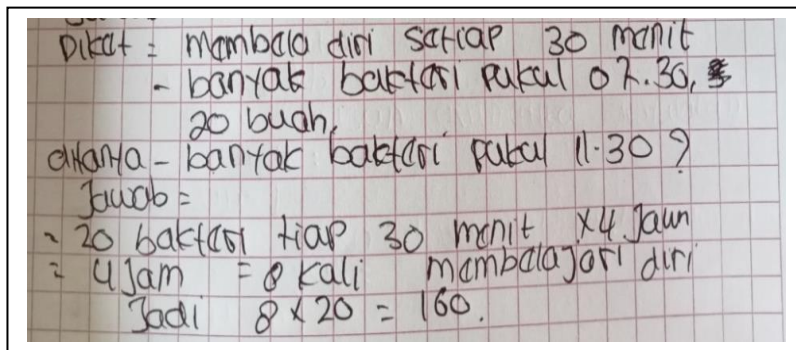 Diket = membela diri setiap 30 menit
- banyak bakteri pukul 07.30,
20 buah,
ditanya - banyak bakteri pukul 11.30 ?
Jawab =
= 20 bakteri tiap 30 menit x 4 Jam
= 4 Jam = 8 kali membelajari diri
Jadi 8 x 20 = 160.